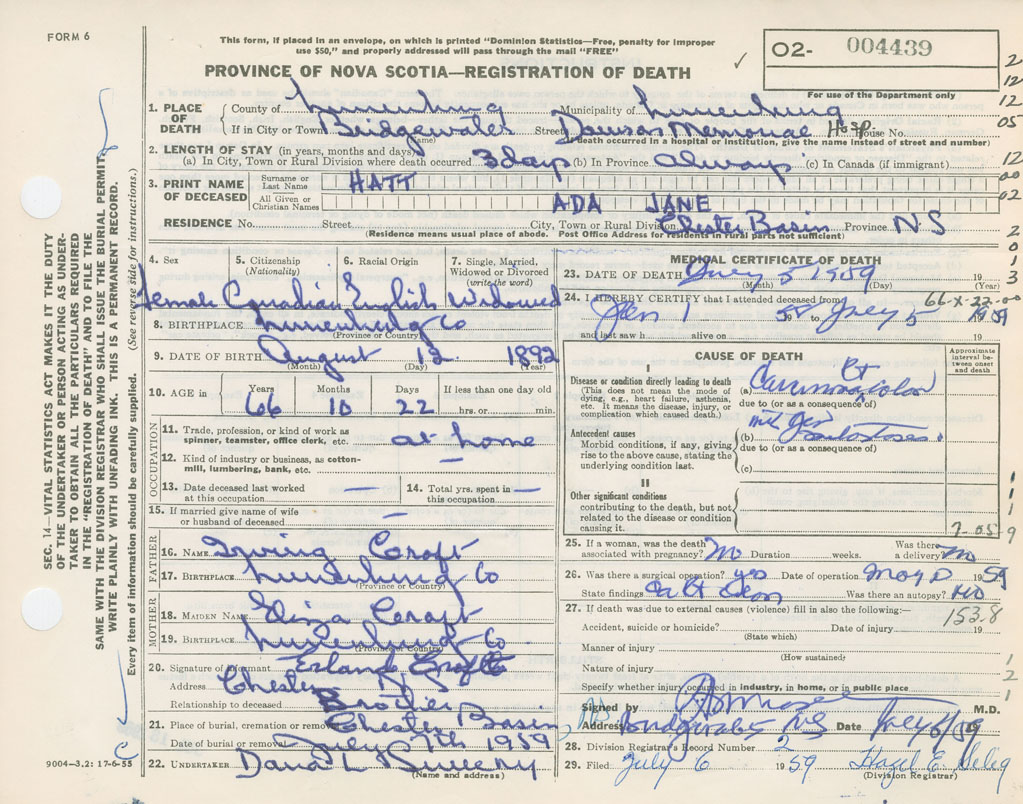 FORM 6
This form, if placed in an envelope, on which is printed "Dominion Statistics—Free, penalty for improper
use $50," and properly addressed will pass through the mail "FREE"
PROVINCE OF NOVA SCOTIA—REGISTRATION OF DEATH
O2- 004439
For use of the Department only
1. PLACE OF DEATH { County of Lunenburg Municipality of Lunenburg
If in City or Town Bridgewater Street Dawson Memorial Hosp. House No.
(Name) (If death occurred in a hospital or institution, give the name instead of street and number)
2. LENGTH OF STAY (in years, months and days)
(a) In City, Town or Rural Division where death occurred 3 days (b) In Province always (c) In Canada (if immigrant)
3. PRINT NAME OF DECEASED { Surname or Last Name HATT
All Given or Christian Names ADA JANE
RESIDENCE No. Street City, Town or Rural Division Chester Basin Province N S
(Residence means usual place of abode. Post Office Address for residents in rural parts not sufficient)
4. Sex Female
5. Citizenship (Nationality) Canadian
6. Racial Origin English
7. Single, Married, Widowed or Divorced (write the word) Widowed
8. BIRTHPLACE Lunenburg Co
(Province or Country)
9. DATE OF BIRTH August 13 1892
(Month) (Day) (Year)
10. AGE in { Years 66 Months 10 Days 22 If less than one day old hrs. or min.
OCCUPATION
11. Trade, profession, or kind of work as spinner, teamster, office clerk, etc. at home
12. Kind of industry or business, as cotton-mill, lumbering, bank, etc. —
13. Date deceased last worked at this occupation —
14. Total yrs. spent in this occupation —
15. If married give name of wife or husband of deceased
FATHER
16. NAME Irving Croft
17. BIRTHPLACE Lunenburg Co
(Province or Country)
MOTHER
18. MAIDEN NAME Croft
19. BIRTHPLACE Lunenburg Co
(Province or Country)
20. Signature of informant Erland
Address Chester N. S
Relationship to deceased Brother
21. Place of burial, cremation or removal Chester Basin
Date of burial or removal July 7th 1959
22. UNDERTAKER
(Name and address)
MEDICAL CERTIFICATE OF DEATH
23. DATE OF DEATH July 5 1959 19
(Month) (Day) (Year)
66-X-22-00
24. I HEREBY CERTIFY that I attended deceased from
Jan 1 58 19 to July 5 1959
and last saw h alive on 19
CAUSE OF DEATH
Approximate interval between onset and death
I
Disease or condition directly leading to death
(This does not mean the mode of dying, e.g., heart failure, asthenia, etc. It means the disease, injury, or complication which caused death.)
(a) Carcinoma Rt colon
due to (or as a consequence of)
Antecedent causes
Morbid conditions, if any, giving rise to the above cause, stating the underlying condition last.
(b)
due to (or as a consequence of)
(c)
II
Other significant conditions
contributing to the death, but not related to the disease or condition causing it.
25. If a woman, was the death associated with pregnancy? No Duration weeks. Was there a delivery No
26. Was there a surgical operation? yes Date of operation 1959
State findings Was there an autopsy? No
27. If death was due to external causes (violence) fill in also the following:— 153.8
Accident, suicide or homicide? Date of injury 19
(State which)
Manner of injury
(How sustained)
Nature of injury
Specify whether injury occurred in industry, in home, or in public place
Signed by M.D.
Address Bridgewater N S Date July 6/59 19
28. Division Registrar's Record Number 2
29. Filed July 6 1959 Hazel E.
(Division Registrar)
SEC. 14—VITAL STATISTICS ACT MAKES IT THE DUTY
OF THE UNDERTAKER OR PERSON ACTING AS UNDER-
TAKER TO OBTAIN ALL THE PARTICULARS REQUIRED
IN THE "REGISTRATION OF DEATH" AND TO FILE THE
SAME WITH THE DIVISION REGISTRAR WHO SHALL ISSUE THE BURIAL PERMIT
WRITE PLAINLY WITH UNFADING INK. THIS IS A PERMANENT RECORD.
Every item of information should be carefully supplied. (See reverse side for instructions.)
9004—3.2: 17-6-55
2
12
12
05
12
00
02
2
0
1
3
1
1
1
9
1
2
1